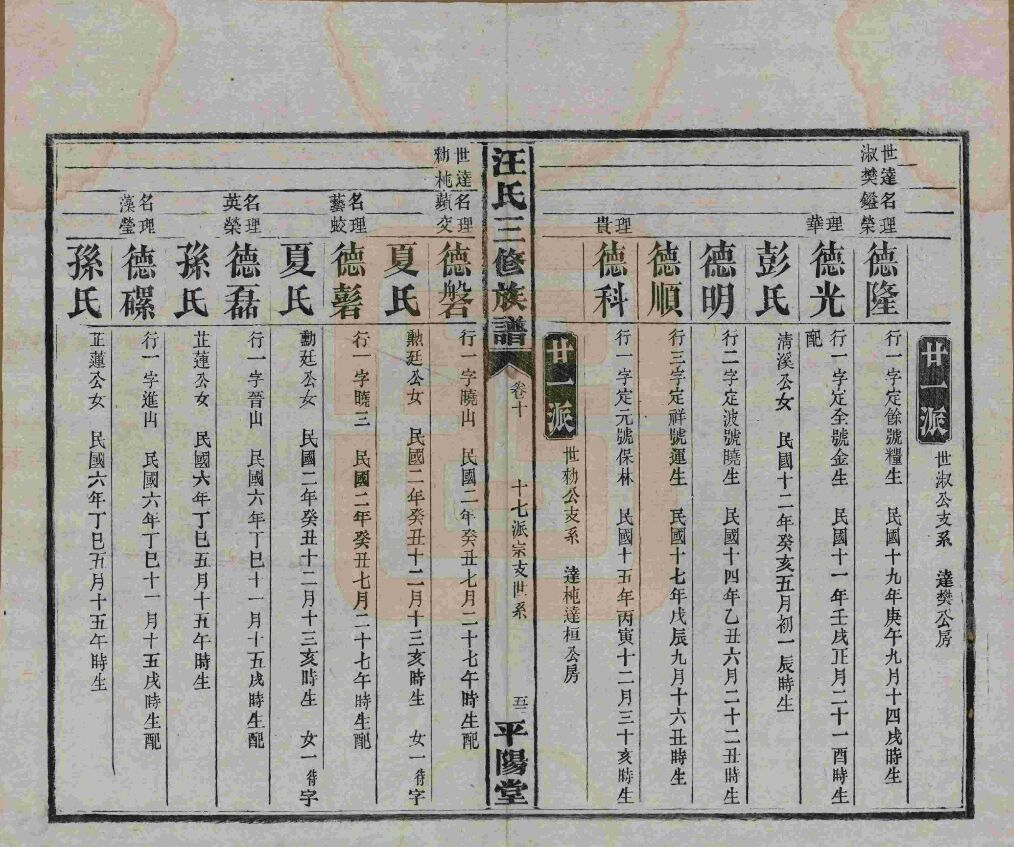 廿一派 世淑公支系 達樊公房
世淑 達樊 名鎰 理榮 德隆 行一字定餘號糧生 民國十九年庚午九月十四戌時生
理華 德光 行一字定全號金生 民國十一年壬戌正月二十一酉時生 配
彭氏 清溪公女 民國十二年癸亥五月初一辰時生
德明 行二字定波號曉生 民國十四年乙丑六月二十二丑時生
德順 行三字定祥號運生 民國十七年戊辰九月十六丑時生
理貴 德科 行一字定元號保林 民國十五年丙寅十二月三十亥時生
廿一派 世勑公支系 達杶達桓公房
汪氏三修族譜 卷十 十七派宗支世系 平陽堂
世勑 達杶 名蘋 理交 德磐 行一字曉山 民國二年癸丑七月二十七午時生配
夏氏 勳廷公女 民國二年癸丑十二月十三亥時生 女一待字
名藝 理蛟 德 行一字曉三 民國二年癸丑七月二十七午時生配
夏氏 勳廷公女 民國二年癸丑十二月十三亥時生 女一待字
名英 理榮 德磊 行一字晉山 民國六年丁巳十一月十五戌時生配
孫氏 芷蓮公女 民國六年丁巳五月十五午時生
名藻 理瑩 德磥 行一字進山 民國六年丁巳十一月十五戌時生配
孫氏 芷蓮公女 民國六年丁巳五月十五午時生